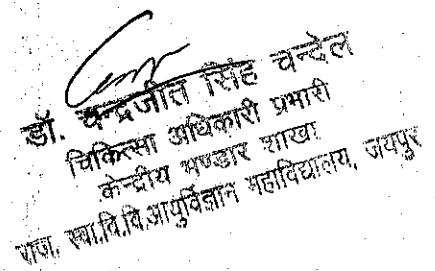 डॉ. चन्द्रजीत सिंह चन्देल
चिकित्सा अधिकारी प्रभारी
केन्द्रीय भण्डार शाखा
राज. स्वा.वि.वि.आयुर्विज्ञान महाविद्यालय, जयपुर